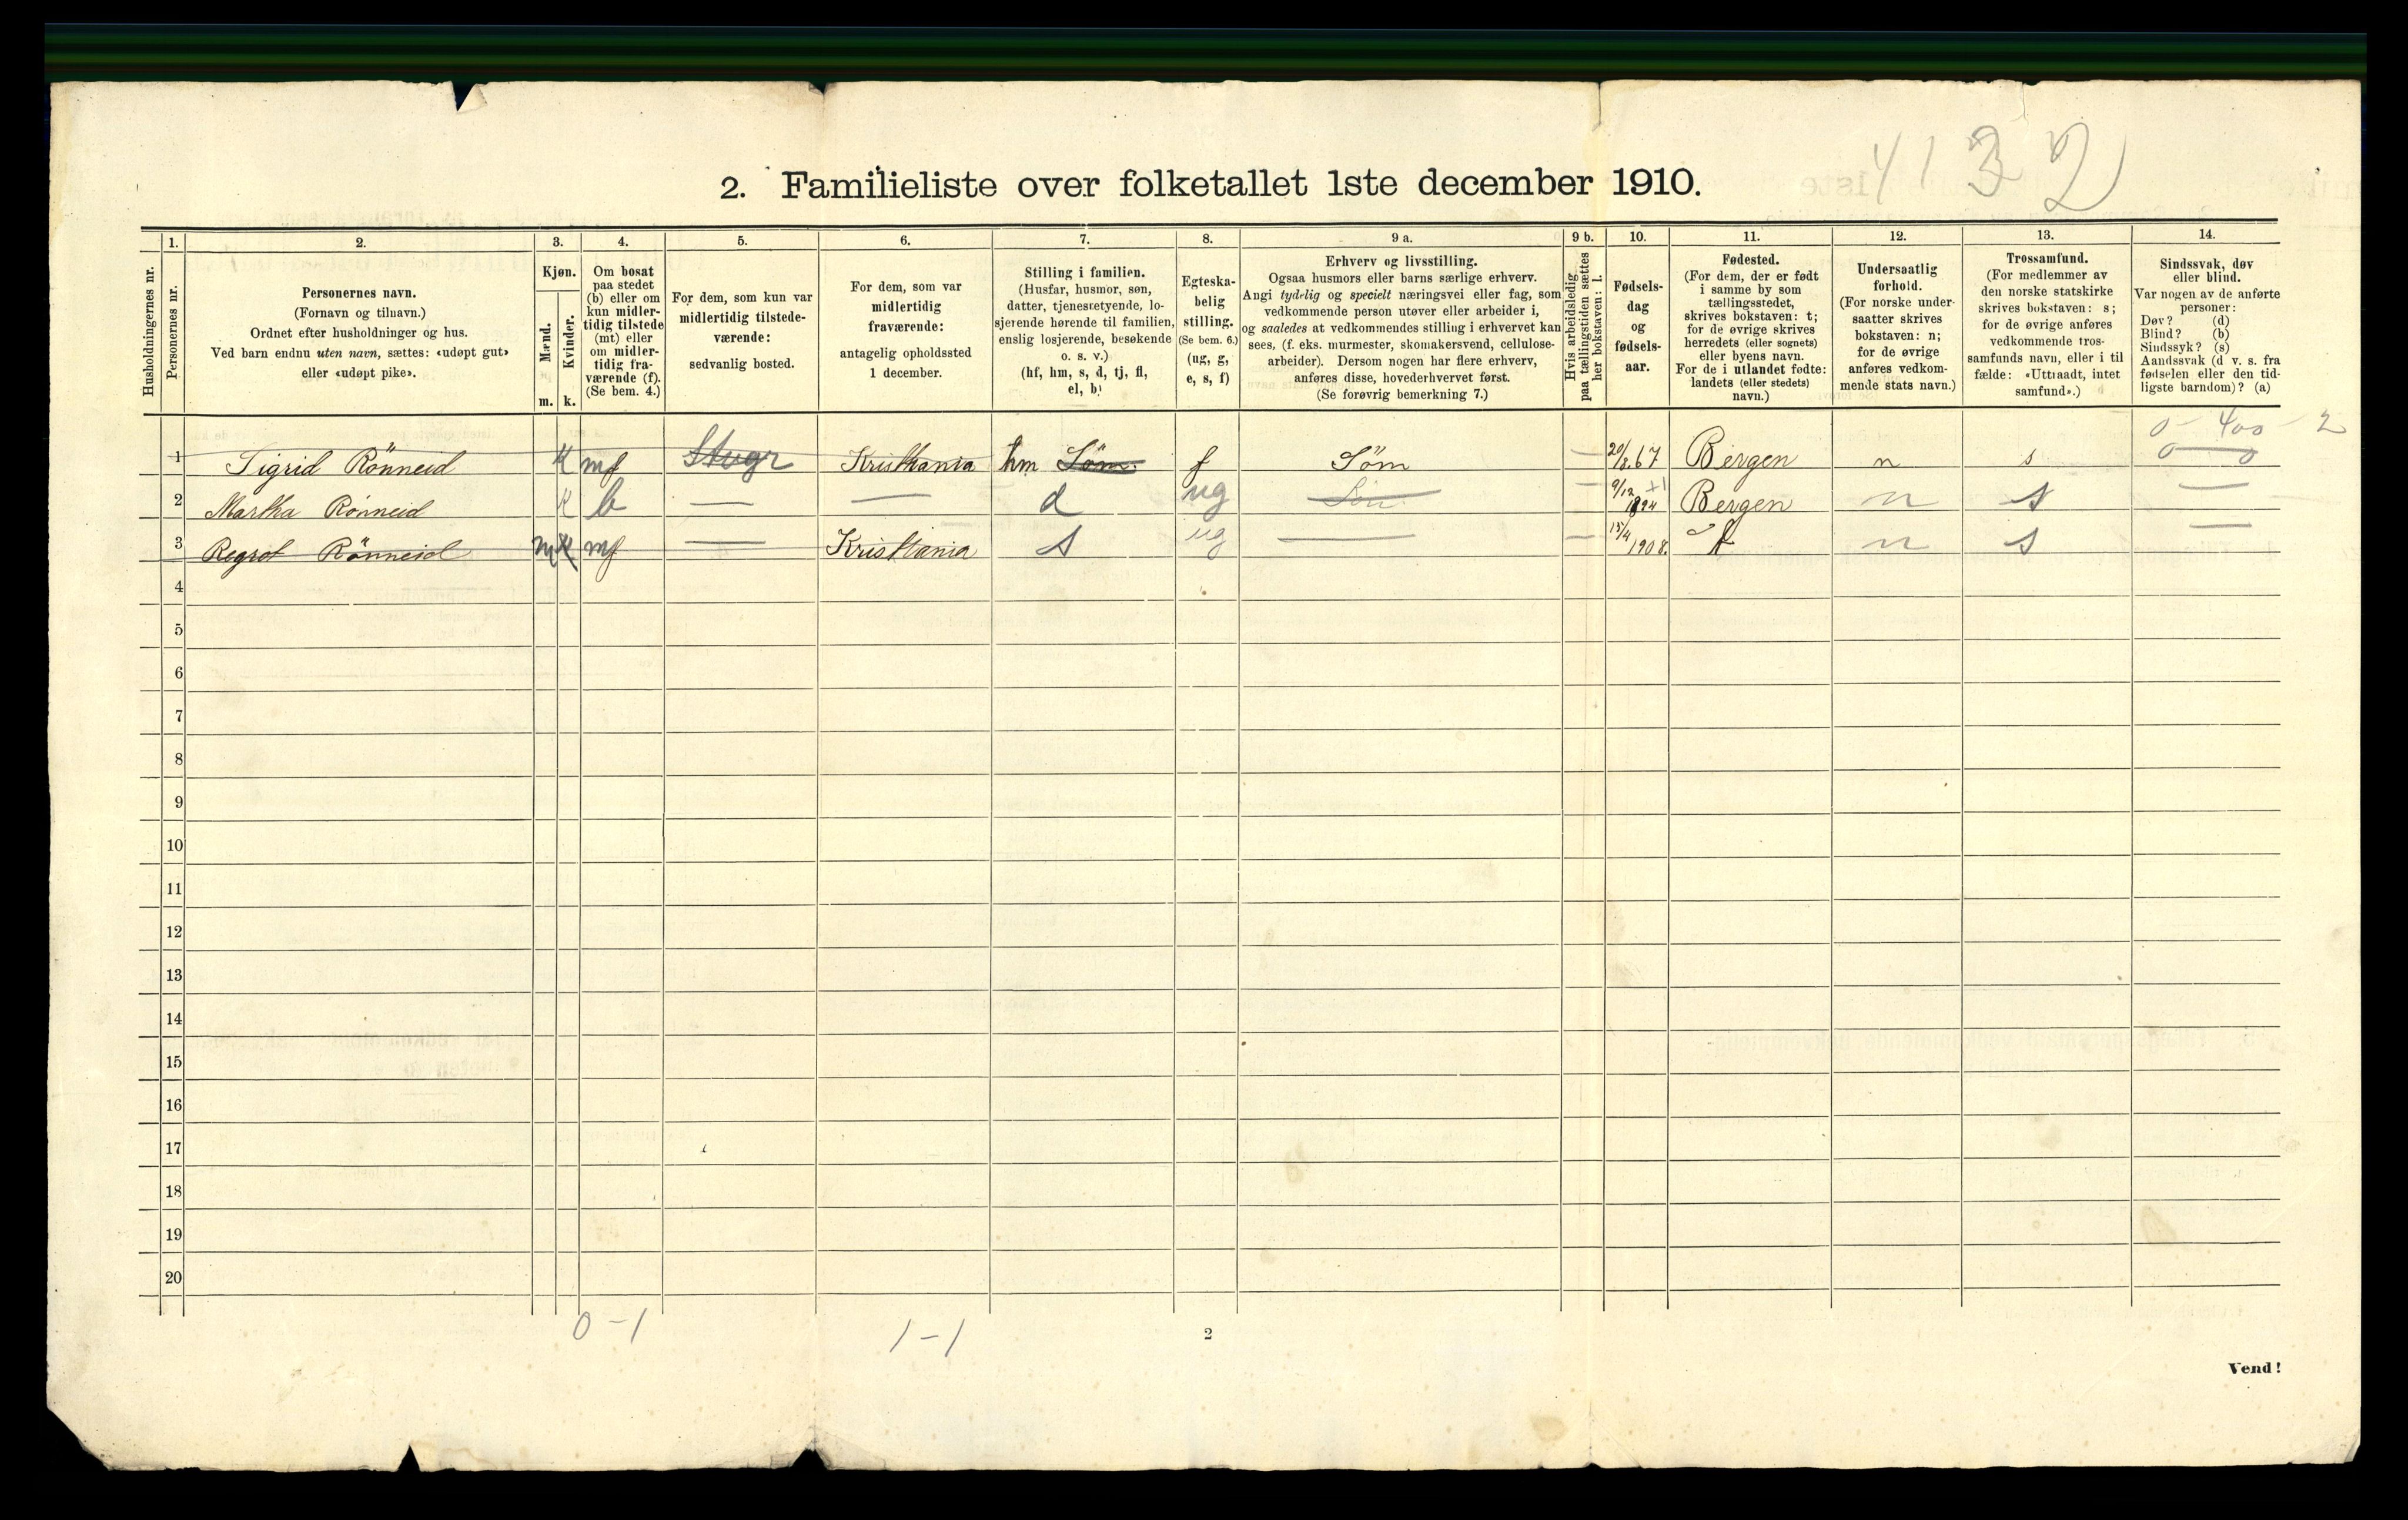 4132
2. Familieliste over folketallet 1ste december 1910.
Husholdningernes nr.
1. Personernes nr.
2. Personernes navn. (Fornavn og tilnavn.) Ordnet efter husholdninger og hus. Ved barn endnu uten navn, sættes: «udøpt gut» eller «udøpt pike».
3. Kjøn. Mænd. m. Kvinder. k.
4. Om bosat paa stedet (b) eller om kun midlertidig tilstede (mt) eller om midlertidig fraværende (f). (Se bem. 4.)
5. For dem, som kun var midlertidig tilstedeværende: sedvanlig bosted.
6. For dem, som var midlertidig fraværende: antagelig opholdssted 1 december.
7. Stilling i familien. (Husfar, husmor, søn, datter, tjenestetyende, losjerende hørende til familien, enslig losjerende, besøkende o. s. v.) (hf, hm, s, d, tj, fl, el, b)
8. Egteskabelig stilling. (Se bem. 6.) (ug, g, e, s, f)
9 a. Erhverv og livsstilling. Ogsaa husmors eller barns særlige erhverv. Angi tydelig og specielt næringsvei eller fag, som vedkommende person utøver eller arbeider i, og saaledes at vedkommendes stilling i erhvervet kan sees, (f. eks. murmester, skomakersvend, cellulosearbeider). Dersom nogen har flere erhverv, anføres disse, hovederhvervet først. (Se forøvrig bemerkning 7.)
9 b. Hvis arbeidsledig paa tællingstiden sættes her bokstaven: l.
10. Fødselsdag og fødselsaar.
11. Fødested. (For dem, der er født i samme by som tællingsstedet, skrives bokstaven: t; for de øvrige skrives herredets (eller sognets) eller byens navn. For de i utlandet fødte: landets (eller stedets) navn.)
12. Undersaatlig forhold. (For norske undersaatter skrives bokstaven: n; for de øvrige anføres vedkommende stats navn.)
13. Trossamfund. (For medlemmer av den norske statskirke skrives bokstaven: s; for de øvrige anføres vedkommende trossamfunds navn, eller i tilfælde: «Uttraadt, intet samfund».)
14. Sindssvak, døv eller blind. Var nogen av de anførte personer: Døv? (d) Blind? (b) Sindssyk? (s) Aandssvak (d v. s. fra fødselen eller den tidligste barndom)? (a)
0 - 400 - 2
1 Sigrid Rönneid K mf Kristiania hm Söm f Söm — 20/8.67 Bergen n s 0 — 0
2 Martha Rönneid K b — — d ug — 9/12 1894 Bergen n s —
3 Regrof Rönneid m K mf — Kristiania s ug — — 15/4 1908. t n s —
4
5
6
7
8
9
10
11
12
13
14
15
16
17
18
19
20
0-1 1-1
2
Vend!